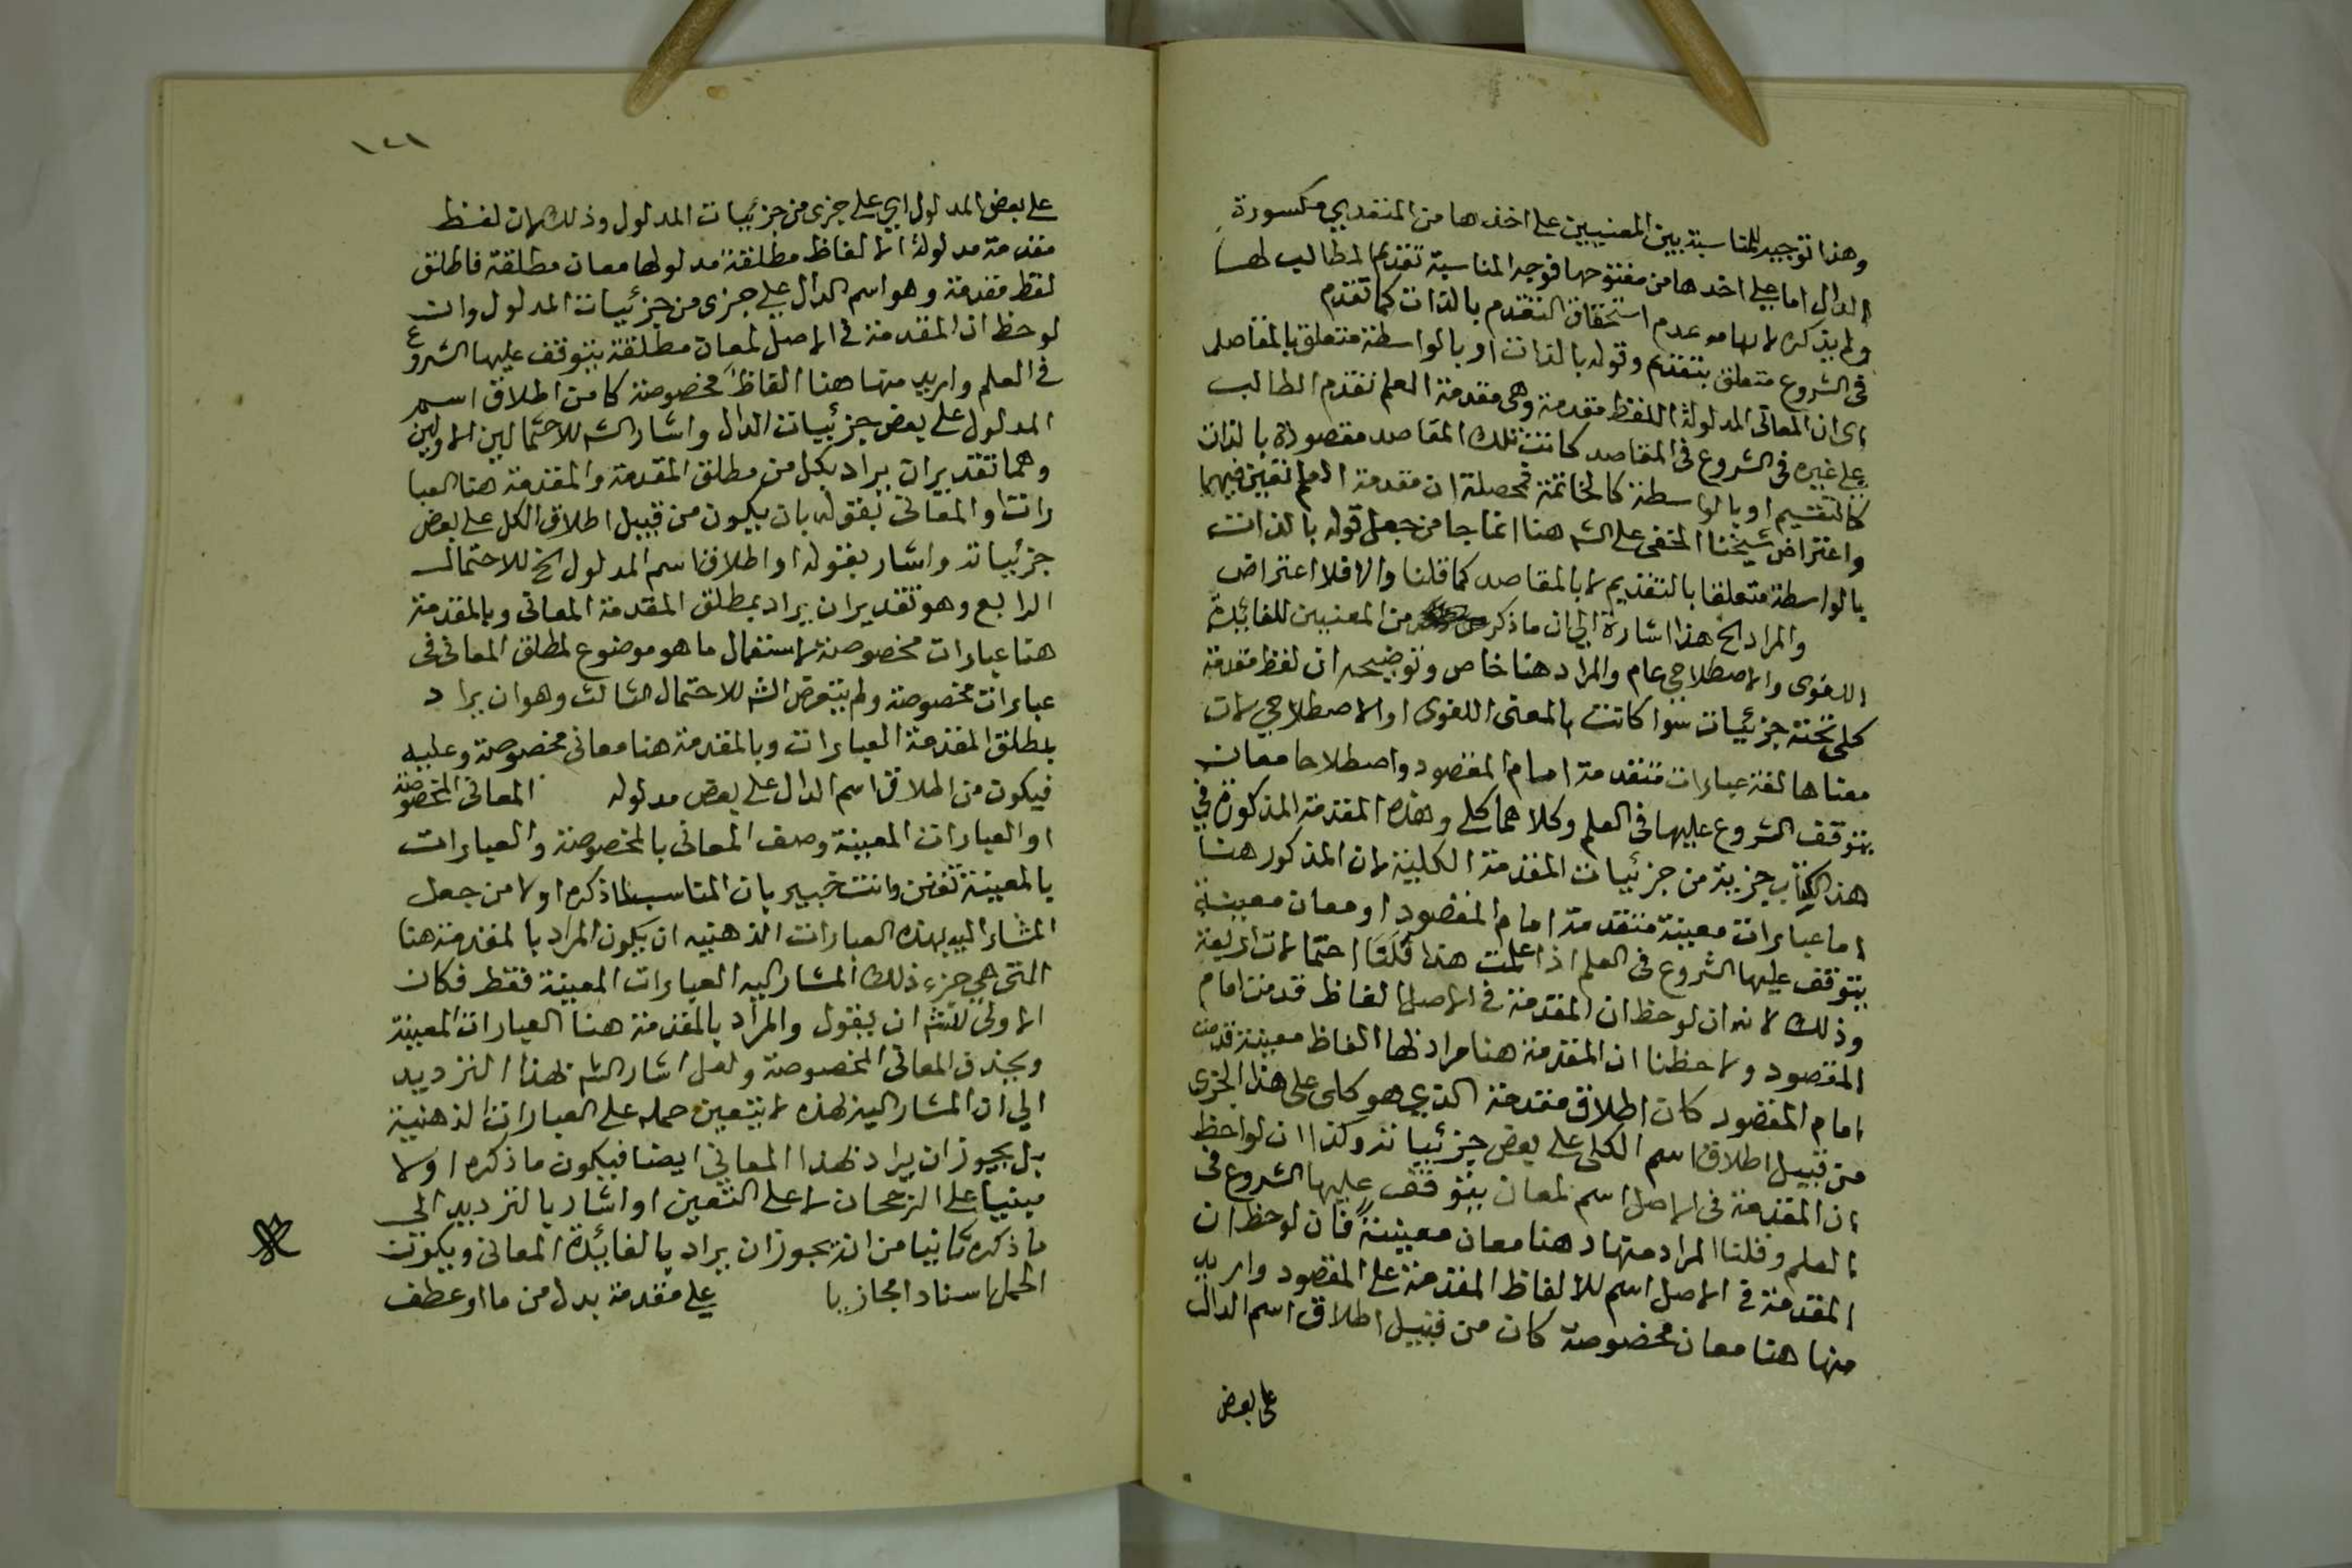 وهذا توجيه للمناسبة بين المعنيين على اخذها من المتعدي مكسورة
الدال اما على اخذها من مفتوحها فوجه المناسبة تقديم الطالب لها
ولم يذكره لايهامه عدم استحقاق التقدم بالذات كما تقدم
في الشروع متعلق بتقديم وقوله بالذات او بالواسطة متعلق بالمقاصد
اي ان المعاني المدلولة للفظ مقدمة وهي مقدمة العلم تقدم الطالب
على غيره في الشروع في المقاصد كانت تلك المقاصد مقصودة بالذات
كالتقسيم او بالواسطة كالخاتمة فمحصله ان مقدمة العلم
واعتراض شيخنا الحفني على الشه هنا انما جا من جعل قوله بالذات
بالواسطة متعلقا بالتقديم لا بالمقاصد كما قلنا والا فلا اعتراض
والمراد الخ هذا اشارة الى ان ما ذكر من المعنيين للفائدة
اللغوي والاصطلاحي عام والمراد هنا خاص وتوضيحه ان لفظ مقدمة
كلي تحته جزئيات سوا كانت بالمعنى اللغوي او الاصطلاحي لان
معناها لغة عبارات متقدمة امام المقصود واصطلاحا معان
يتوقف الشروع عليها في العلم وكلاهما كلي وهذه المقدمة المذكورة في
هذا الكتاب جزيية من جزئيات المقدمة الكلية لان المذكور هنا
اما عبارات معينة متقدمة امام المقصود او معان معينة
يتوقف عليها الشروع في العلم اذا علمت هذا فلك احتمالات اربعة
وذلك لانه ان لوحظ ان المقدمة في الاصل الفاظ قدمت امام
المقصود ولاحظنا ان المقدمة هنا مراد لها الفاظ معينة قدمت
امام المقصود كان اطلاق مقدمة الذي هو كلي على هذا الجزي
من قبيل اطلاق اسم الكلي على بعض جزئياته وكذا ان لواحظ
ان المقدمة في الاصل اسم لمعان يتوقف عليها الشروع في
العلم وقلنا المراد منها د هنا معان معينة فان لوحظ ان
المقدمة في الاصل اسم للالفاظ المقدمة على المقصود واريد
منها هنا معان مخصوصة كان من قبيل اطلاق اسم الدال
على بعض
١٢١
على بعض المدلول اي على جزي من جزئيات المدلول وذلك لان لفظ
مقدمة مدلوله الالفاظ مطلقة مدلولها معان مطلقة فاطلق
لفظ مقدمة وهو اسم الدال على جزي من جزئيات المدلول وان
لوحظ ان المقدمة في الاصل لمعان مطلقة يتوقف عليها الشروع
في العلم واريد منها هنا الفاظ مخصوصة كان من اطلاق اسم
المدلول على بعض جزئيات الدال واشار الشه للاحتمالين الاولين
وهما تقديران يراد بكل من مطلق المقدمة والمقدمة هنا العبا
رات او المعاني بقوله بان يكون من قبيل اطلاق الكل على بعض
جزئياته واشار بقوله او اطلاق اسم المدلول الخ للاحتمال
الرابع وهو تقديران يراد بمطلق المقدمة المعاني وبالمقدمة
هنا عبارات مخصوصة لاستعمال ما هو موضوع لمطلق المعاني في
عبارات مخصوصة ولم يتعرض الشه للاحتمال الثالث وهو ان يراد
بمطلق المقدمة العبارات وبالمقدمة هنا معاني مخصوصة وعليه
فيكون من اطلاق اسم الدال على بعض مدلوله المعاني المخصوصة
او العبارات المعينة وصف المعاني بالمخصوصة والعبارات
بالمعينة تفنن وانت خبير بان المناسب لما ذكره اولا من جعل
المشار اليه بهذه العبارات الذهنية ان يكون المراد بالمقدمة هنا
التي هي جزء ذلك المشار اليه العبارات المعينة فقط فكان
الاولى للشه ان يقول والمراد بالمقدمة هنا العبارات المعينة
ويحذف المعاني المخصوصة ولعل اشار الشه بهذا الترديد
الى ان المشار اليه بهذه لا يتعين حمله على العبارات الذهنية
بل يجوز ان يراد بهذا المعاني ايضا فيكون ما ذكره اولا
مبنيا على الرجحان لا على التعين او اشار بالترديد الى
ما ذكره ثانيا من انه يجوز ان يراد بالفائدة المعاني ويكون
الحمل اسنادا مجازيا على مقدمة بدل من ما او عطف